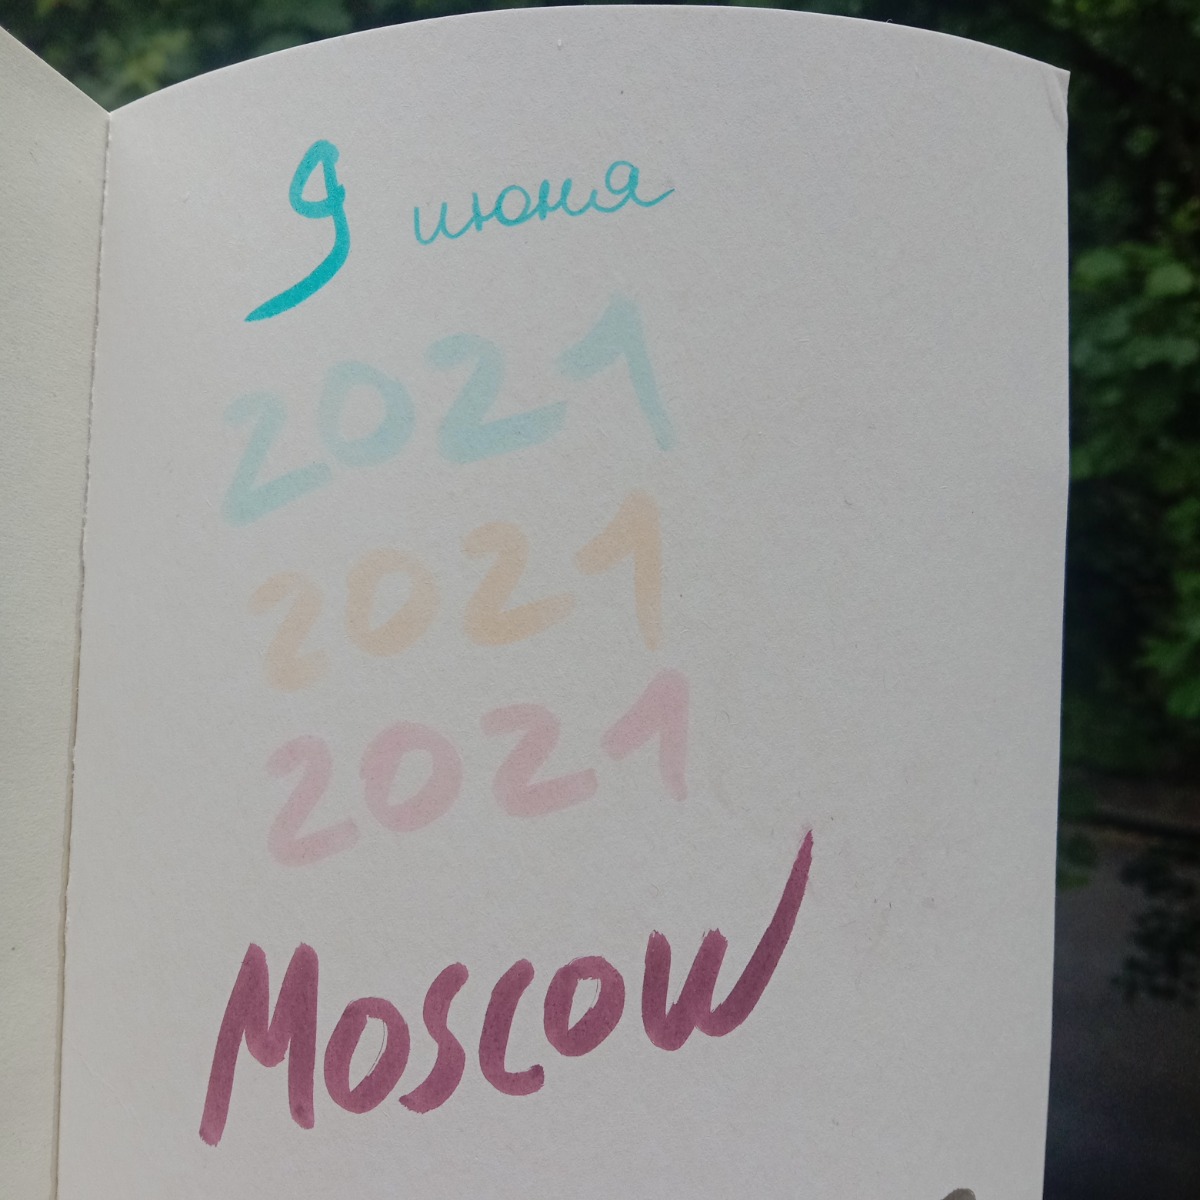 9 июня
2021
2021
2021
Moscow